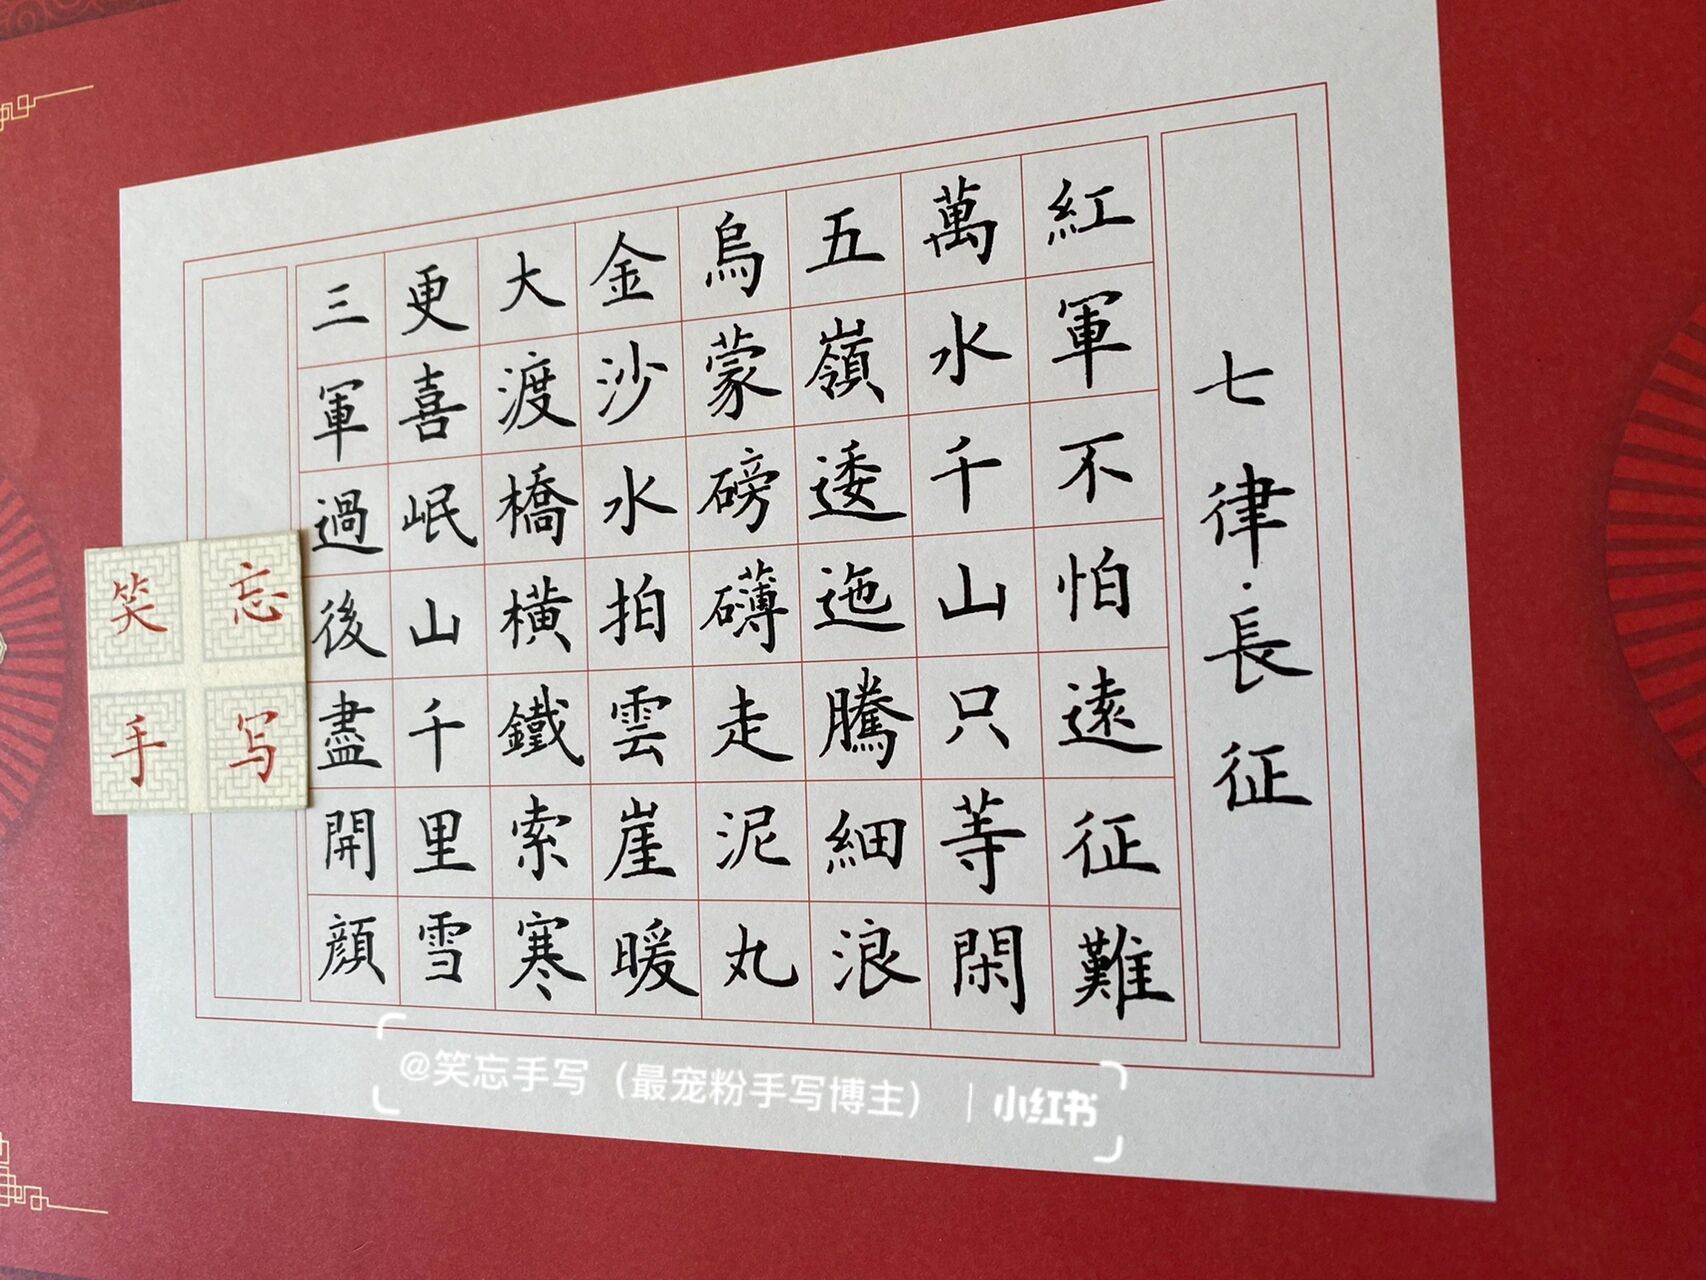 七律·長征
紅軍不怕遠征難
萬水千山只等閑
五嶺逶迤騰細浪
烏蒙磅礴走泥丸
金沙水拍雲崖暖
大渡橋橫鐵索寒
更喜岷山千里雪
三軍過後盡開顏
笑忘
手写
@笑忘手写（最宠粉手写博主）｜小红书